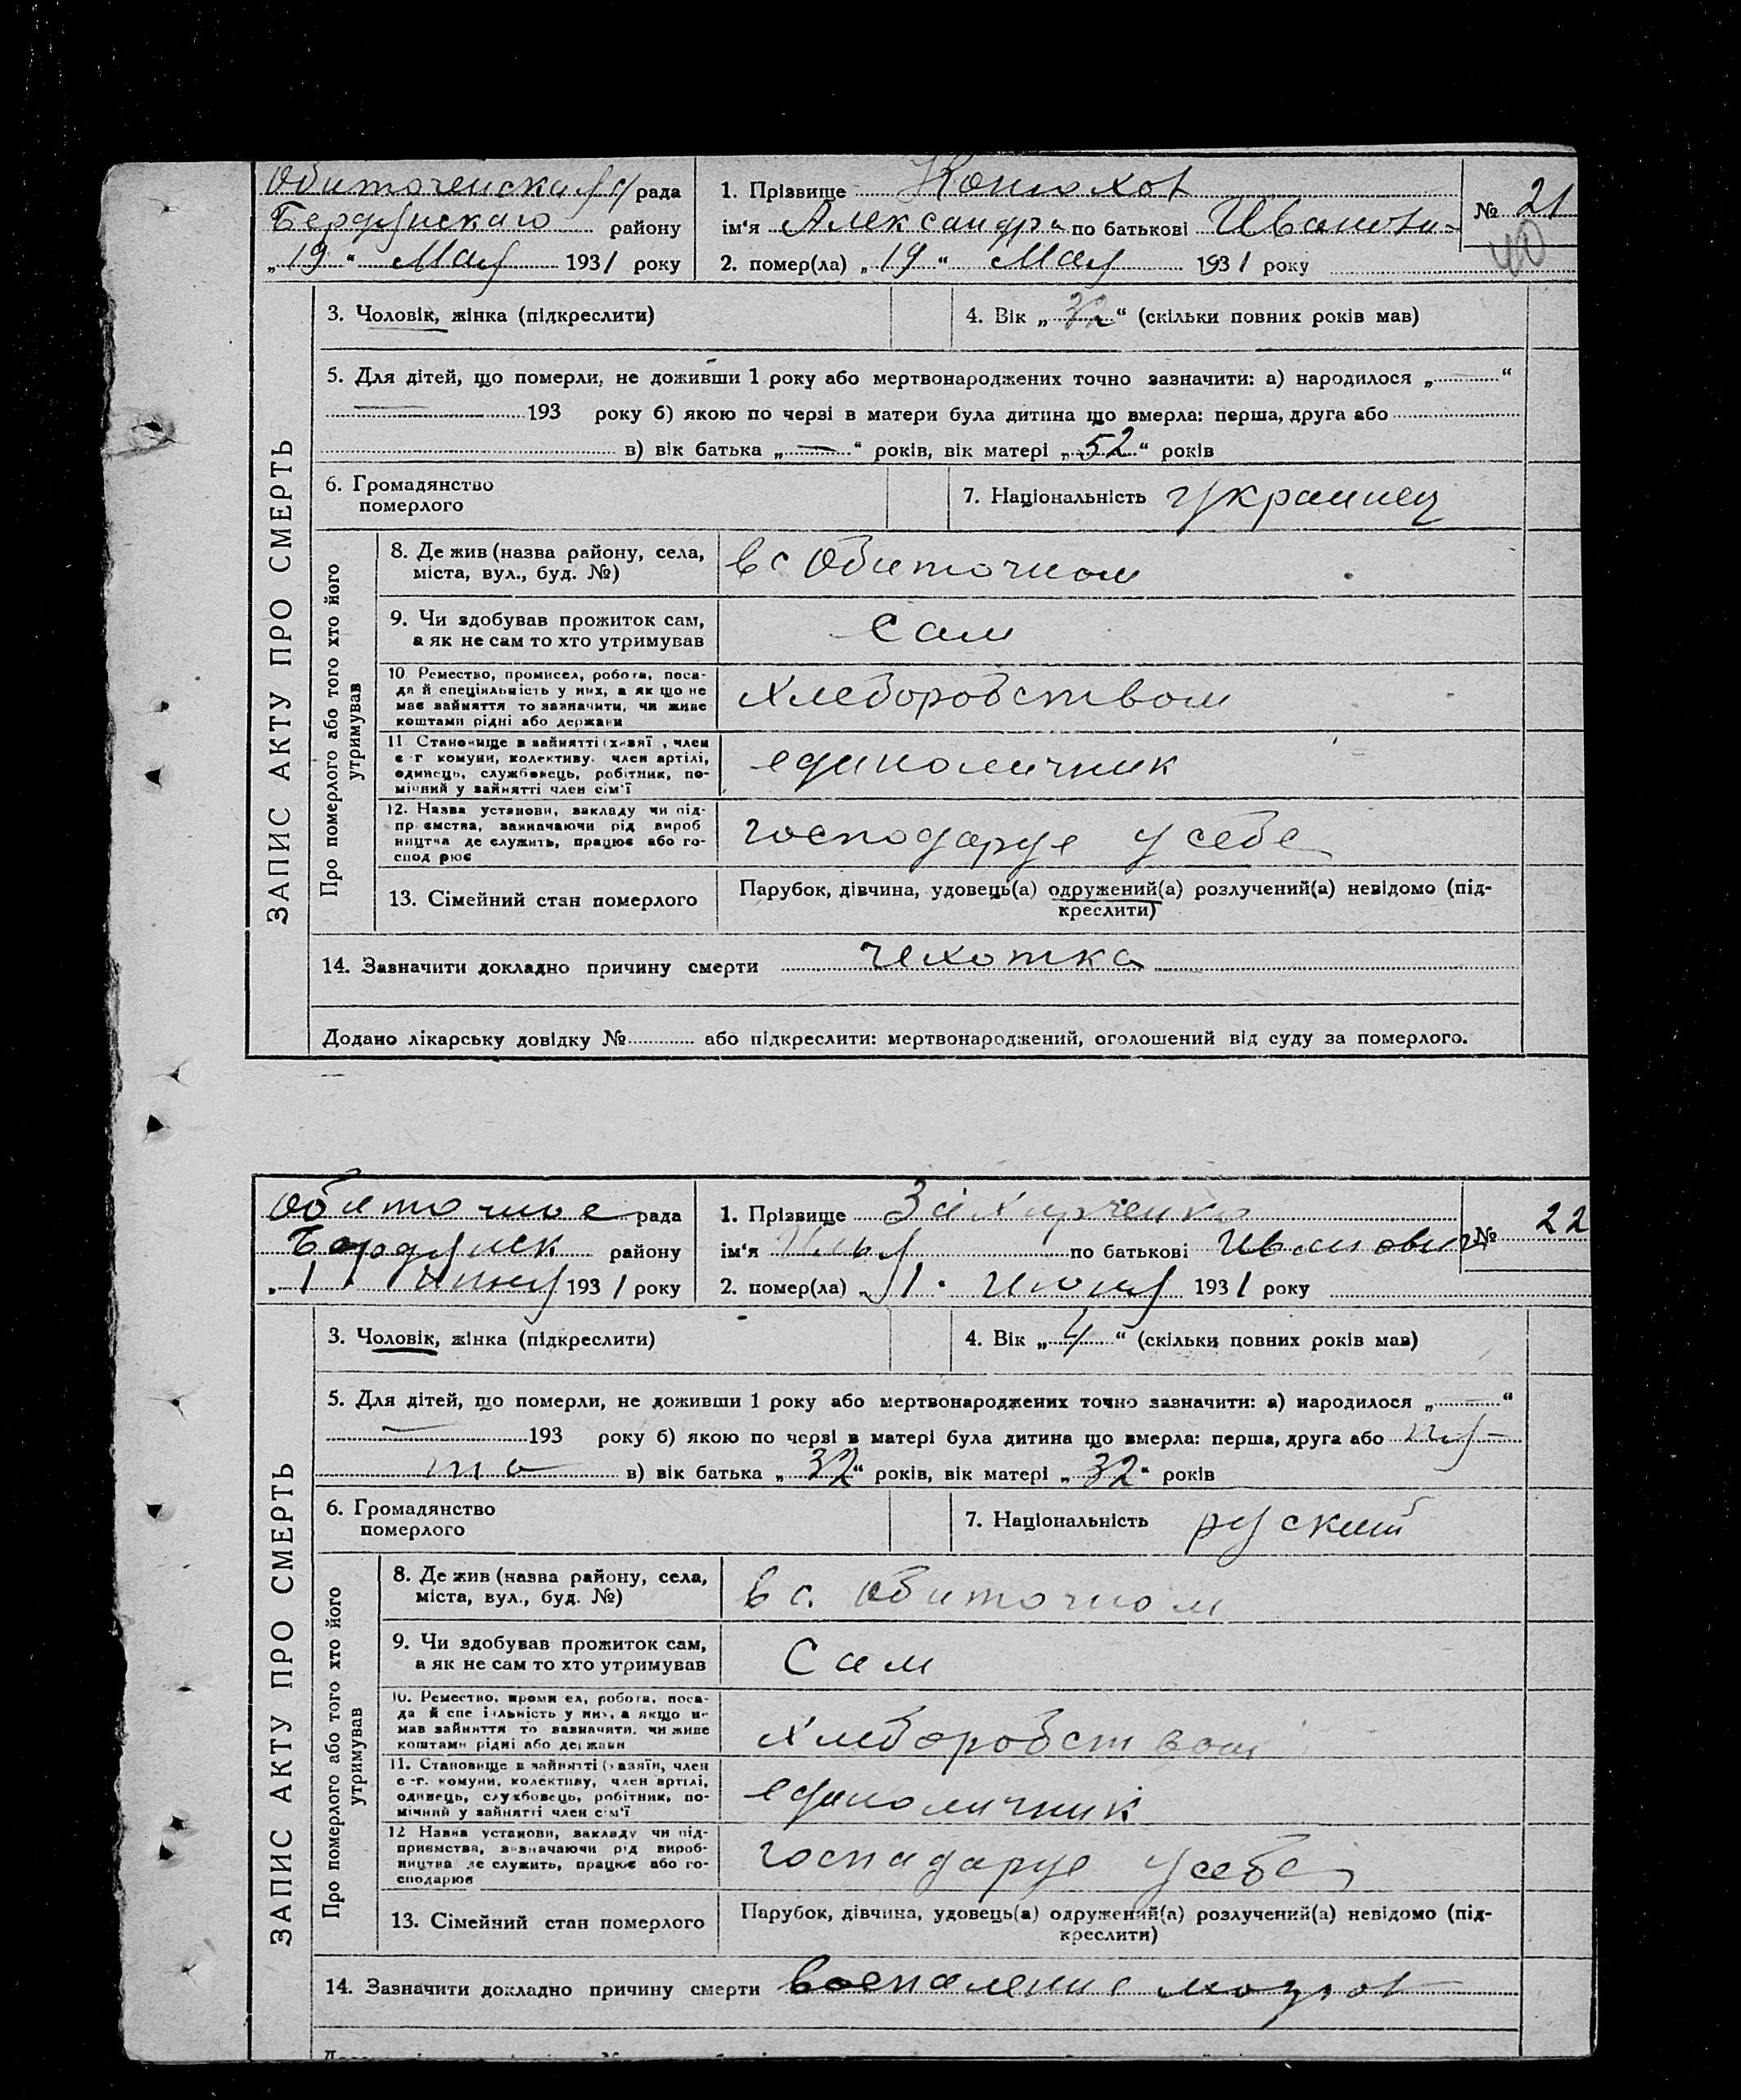 Обиточенская с/рада
Бердянскаго району
„19“ Мая 1931 року
1. Прізвище Конюхов
ім‘я Александр по батькові Иванови-
2. помер(ла) „19“ Мая 1931 року
№ 21
40
ЗАПИС АКТУ ПРО СМЕРТЬ
3. Чоловік, жінка (підкреслити)
4. Вік „32“ (скільки повних років мав)
5. Для дітей, що померли, не доживши 1 року або мертвонароджених точно зазначити: а) народилося „—“
— 193 року б) якою по черзі в матери була дитина що вмерла: перша, друга або
в) вік батька „—“ років, вік матері „52“ років
6. Громадянство
померлого
7. Національність украинец
Про померлого або того хто його
утримував
8. Де жив (назва району, села,
міста, вул., буд. №)
в с Обиточном
9. Чи здобував прожиток сам,
а як не сам то хто утримував
Сам
10. Ремество, промисел, робота, поса-
да й спеціяльність у них, а як що не
має зайняття то зазначити, чи живе
коштами рідні або держави
хлеборобством
11. Становище в зайнятті (хазяї , член
с-г комуни, колективу, член артілі,
одинець, службовець, робітник, по-
мічний у зайнятті член сім‘ї
единоличник
12. Назва установи, закладу чи під-
пр ємства, зазначаючи рід вироб
ництва де служить, працює або го-
спод рює
господарує у себе
13. Сімейний стан померлого
Парубок, дівчина, удовець(а) одружений(а) розлучений(а) невідомо (під-
креслити)
14. Зазначити докладно причину смерти чехотка
Додано лікарську довідку № або підкреслити: мертвонароджений, оголошений від суду за померлого.
Обиточное рада
Бердянск району
„1 Июня 1931 року
1. Прізвище Захарченко
ім‘я Илья по батькові Иванович
2. помер(ла) „1. Июня 1931 року
№ 22
ЗАПИС АКТУ ПРО СМЕРТЬ
3. Чоловік, жінка (підкреслити)
4. Вік „4“ (скільки повних років мав)
5. Для дітей, що померли, не доживши 1 року або мертвонароджених точно зазначити: а) народилося „—“
— 193 року б) якою по черзі в матері була дитина що вмерла: перша, друга або пя-
та в) вік батька „32“ років, вік матері „32“ років
6. Громадянство
померлого
7. Національність руский
Про померлого або того хто його
утримував
8. Де жив (назва району, села,
міста, вул., буд. №)
в с. Обиточном
9. Чи здобував прожиток сам,
а як не сам то хто утримував
Сам
10. Ремество, проми ел, робота, поса-
да й спе іяльність у них, а якщо не
мав зайняття то зазначити, чи живе
коштами рідні або держави
хлеборобством
11. Становище в зайнятті (хазяїн, член
с-г. комуни, колективу, член артілі,
одинець, службовець, робітник, по-
мічний у зайнятті член сім‘ї
единоличник
12 Назва установи, закладу чи під-
приємства, зазначаючи рід вироб-
ництва де служить, працює або го-
сподарює
госпадарує у себе
13. Сімейний стан померлого
Парубок, дівчина, удовець(а) одружений(а) розлучений(а) невідомо (під-
креслити)
14. Зазначити докладно причину смерти воспаление мозгов